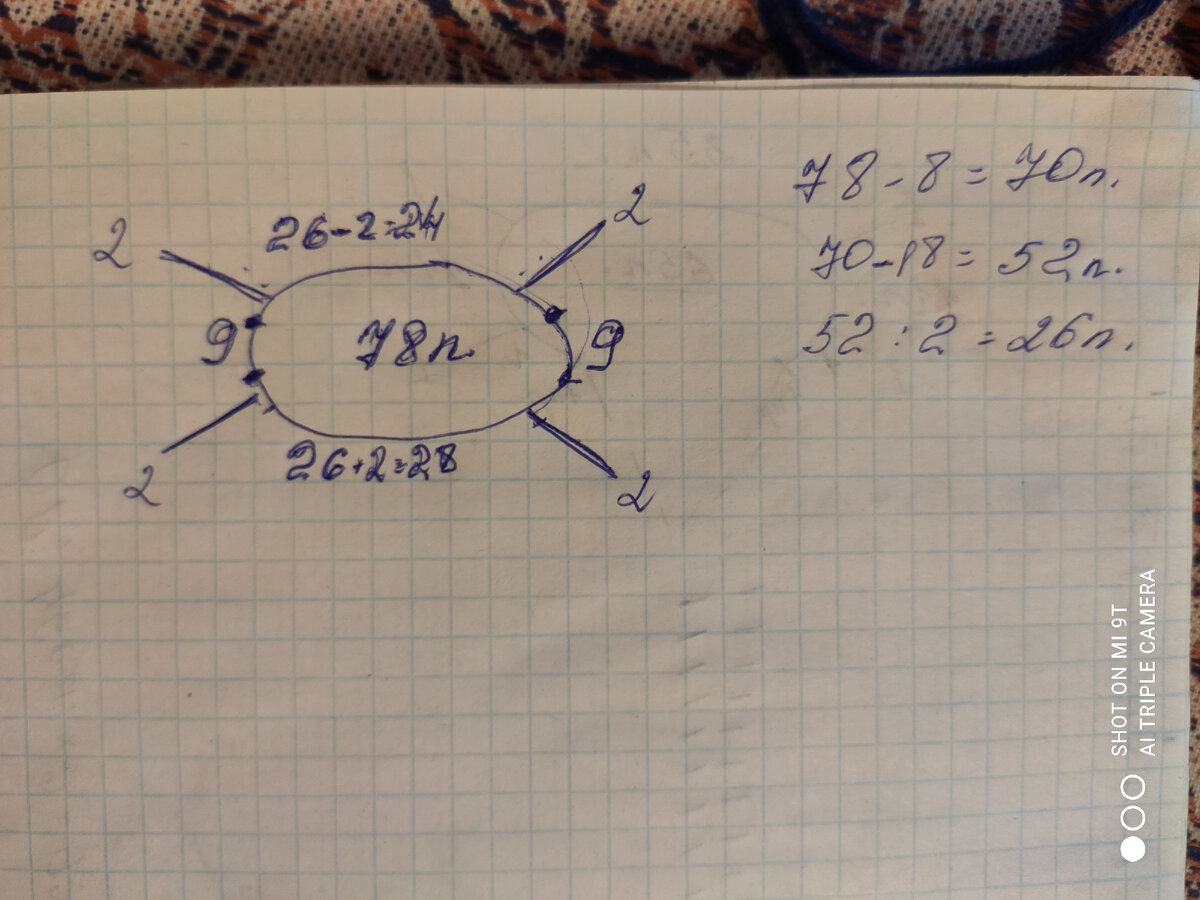 2
26-2=24
2
9
78п.
9
2
26+2=28
2
78-8=70п.
70-18=52п.
52:2=26п.
SHOT ON MI 9T
AI TRIPLE CAMERA